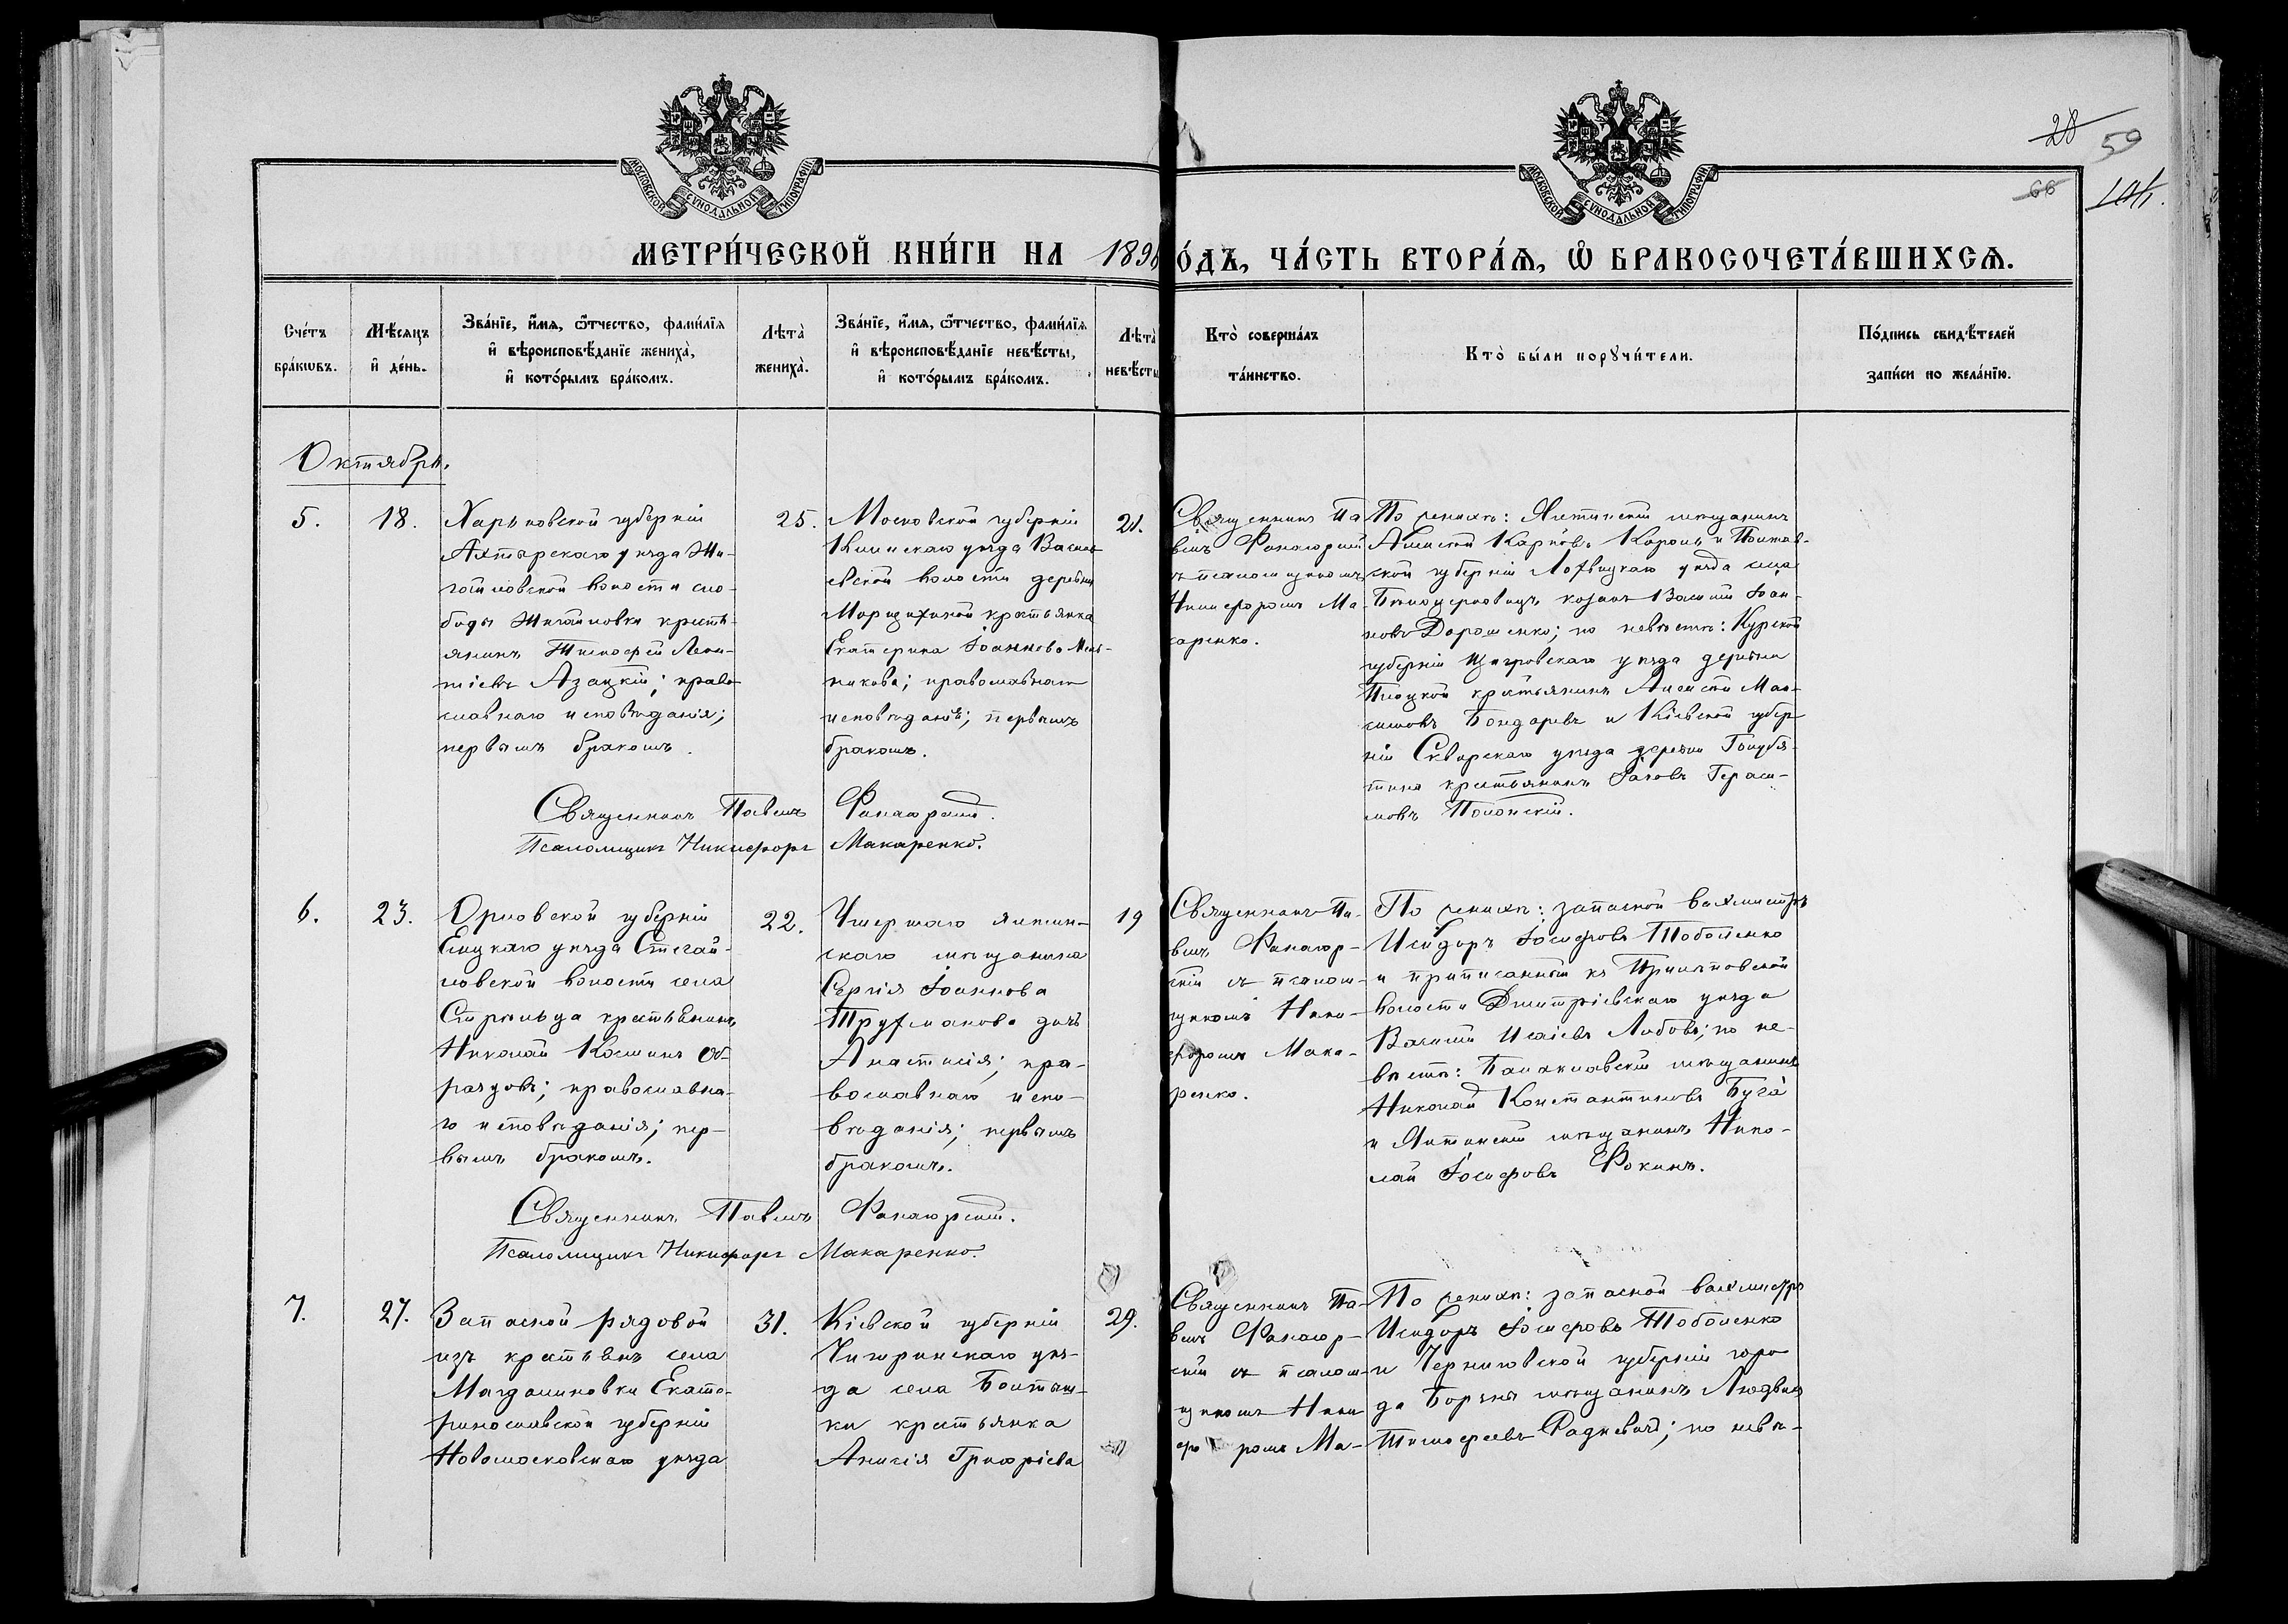 МОСКОВСКОЙ СѴНОДАЛЬНОЙ ТИПОГРАФІИ
МОСКОВСКОЙ СѴНОДАЛЬНОЙ ТИПОГРАФІИ
28
59
66
МЕТРИ́ЧЕСКОЙ КНИ́ГИ НА 1898
О́ДЪ, ЧА́СТЬ ВТОРА́Ѧ, Ѽ БРАКОСОЧЕТА́ВШИХСѦ.
Сче́тъ
бра́кѡвъ.
Мѣ́сяцъ
и҆ де́нь.
Зва́нїе, и҆́мя, ѻ҆́тчество, фами́лїя
и҆ вѣроисповѣ́данїе жениха̀,
и҆ кото́рымъ бра́комъ.
Лѣта̀
жениха̀.
Зва́нїе, и҆́мя, ѻ҆́тчество, фами́лїя
и҆ вѣроисповѣ́данїе невѣ́сты,
и҆ кото́рымъ бра́комъ.
Лѣта̀
невѣ́сты
Кто̀ соверша́лъ
та́инство.
Кто̀ бы́ли порꙋчи́тели.
По́дпись свидѣ́телей
за́писи по жела́нїю.
Октябрь.
5.
18.
Харьковской губерніи
Ахтырскаго уѣзда Жи-
гайловской волости сло-
боды Жигайловки кресть-
янинъ Тимофей Леон-
тіевъ Азацкій; право-
славнаго исповѣданія;
первымъ бракомъ.
25.
Московской губерніи
Клинскаго уѣзда Васил-
евской волости деревни
крестьянка
Екатерина Іоаннова Мель-
никова; православнаго
исповѣданія; первымъ
бракомъ.
21.
Священникъ Па
велъ Фанагорскій
съ псаломщикомъ
Никифоромъ Ма-
каренко.
По женихѣ: Ялтинскій мѣщанинъ
Алексѣй Карповъ Король и Полтав-
ской губерніи Лохвицкаго уѣзда села
Бѣлоцерковецъ козакъ Василій Іоан-
новъ Дорошенко; по невѣстѣ: Курской
губерніи Щигровскаго уѣзда деревни
Плоцкой крестьянинъ Алексѣй Мак-
симовъ Бондаревъ и Кіевской губер-
ніи Сквирскаго уѣзда деревни Голубя-
тина крестьянинъ Іаковъ Гераси-
мовъ Полонскій.
Священникъ Павелъ Фанагорскій.
Псаломщикъ Никифоръ Макаренко.
6.
23.
Орловской губерніи
Елецкаго уѣзда Стегай-
ловской волости села
Стрѣльца крестьянинъ
Николай Косминъ Об-
разцовъ; православна-
го исповѣданія; пер-
вымъ бракомъ.
22.
Умершаго ялтин-
скаго мѣщанина
Сергія Іоаннова
Труфманова дочь
Анастасія; пра-
вославнаго испо-
вѣданія; первымъ
бракомъ.
19
Священникъ Па-
велъ Фанагор-
скій съ псалом-
щикомъ Ники-
форомъ Мака-
ренко.
По женихѣ: запасной вахмистръ
Исидоръ Іосифовъ Тоболенко
и приписанный къ Прилѣповской
волости Дмитріевскаго уѣзда
Василій Исаіевъ Любовъ; по не-
вѣстѣ: Балаклавскій мѣщанинъ
Николай Константиновъ Буга
и Ялтинскій мѣщанинъ Нико-
лай Іосифовъ Фокинъ.
Священникъ Павелъ Фанагорскій.
Псаломщикъ Никифоръ Макаренко.
7.
27.
Запасной рядовой
изъ крестьянъ села
Магдалиновки Екате-
ринославской губерніи
Новомосковскаго уѣзда
31.
Кіевской губерніи
Чигринскаго уѣз-
да села Болтыш-
ки крестьянка
Анисія Григоріева
29.
Священникъ Па-
велъ Фанагор-
скій съ псалом-
щикомъ Ники
форомъ Ма-
По женихѣ: запасной вахмистръ
Исидоръ Іосифовъ Тоболенко
и Черниговской губерніи горо
да Борзны мѣщанинъ Людвигъ
Тимофеевъ Радкевичъ; по невѣ-